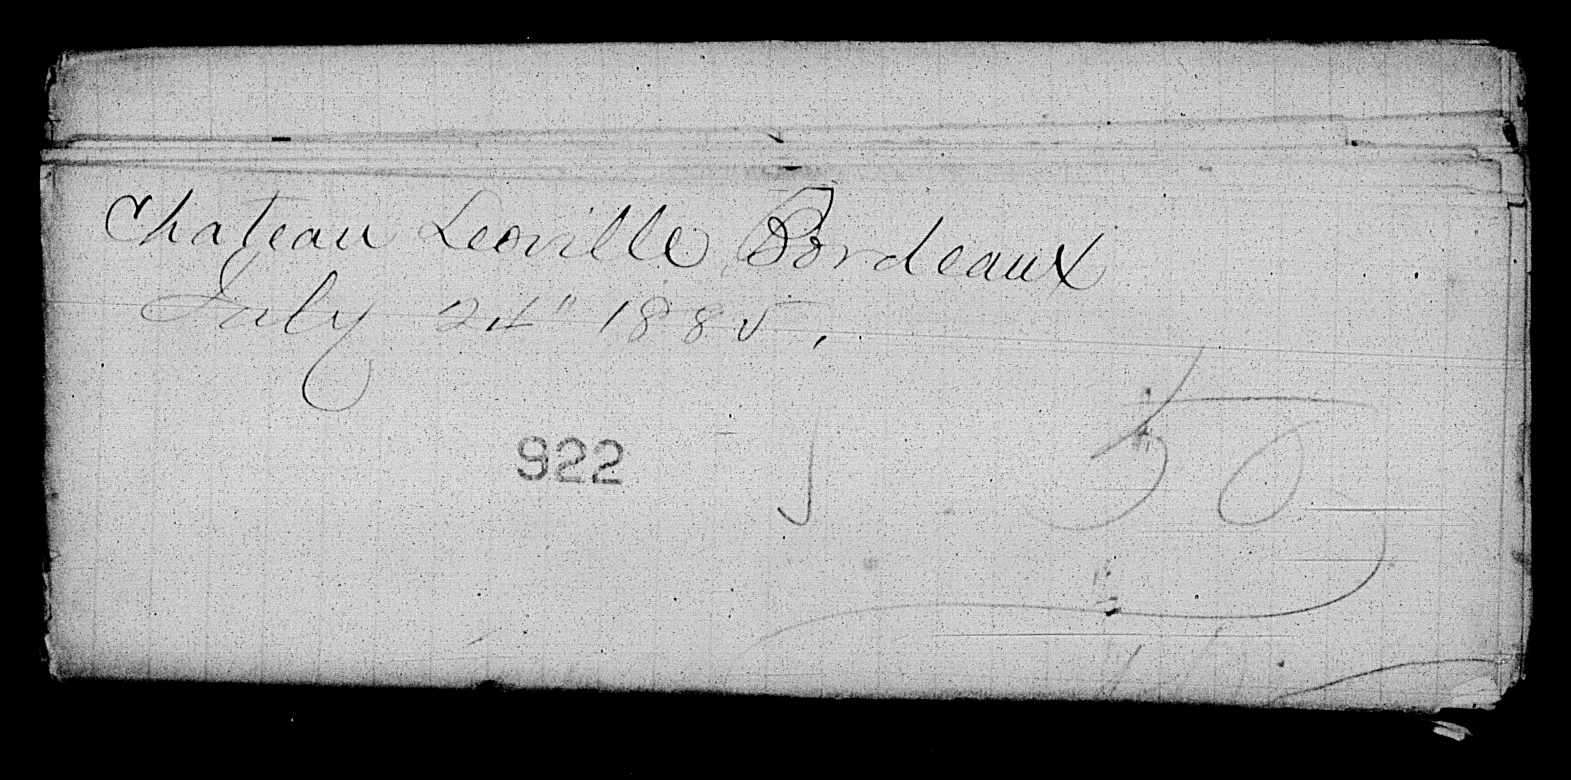 Chateau Leoville Bordeaux
July 24" 1885.
922
50